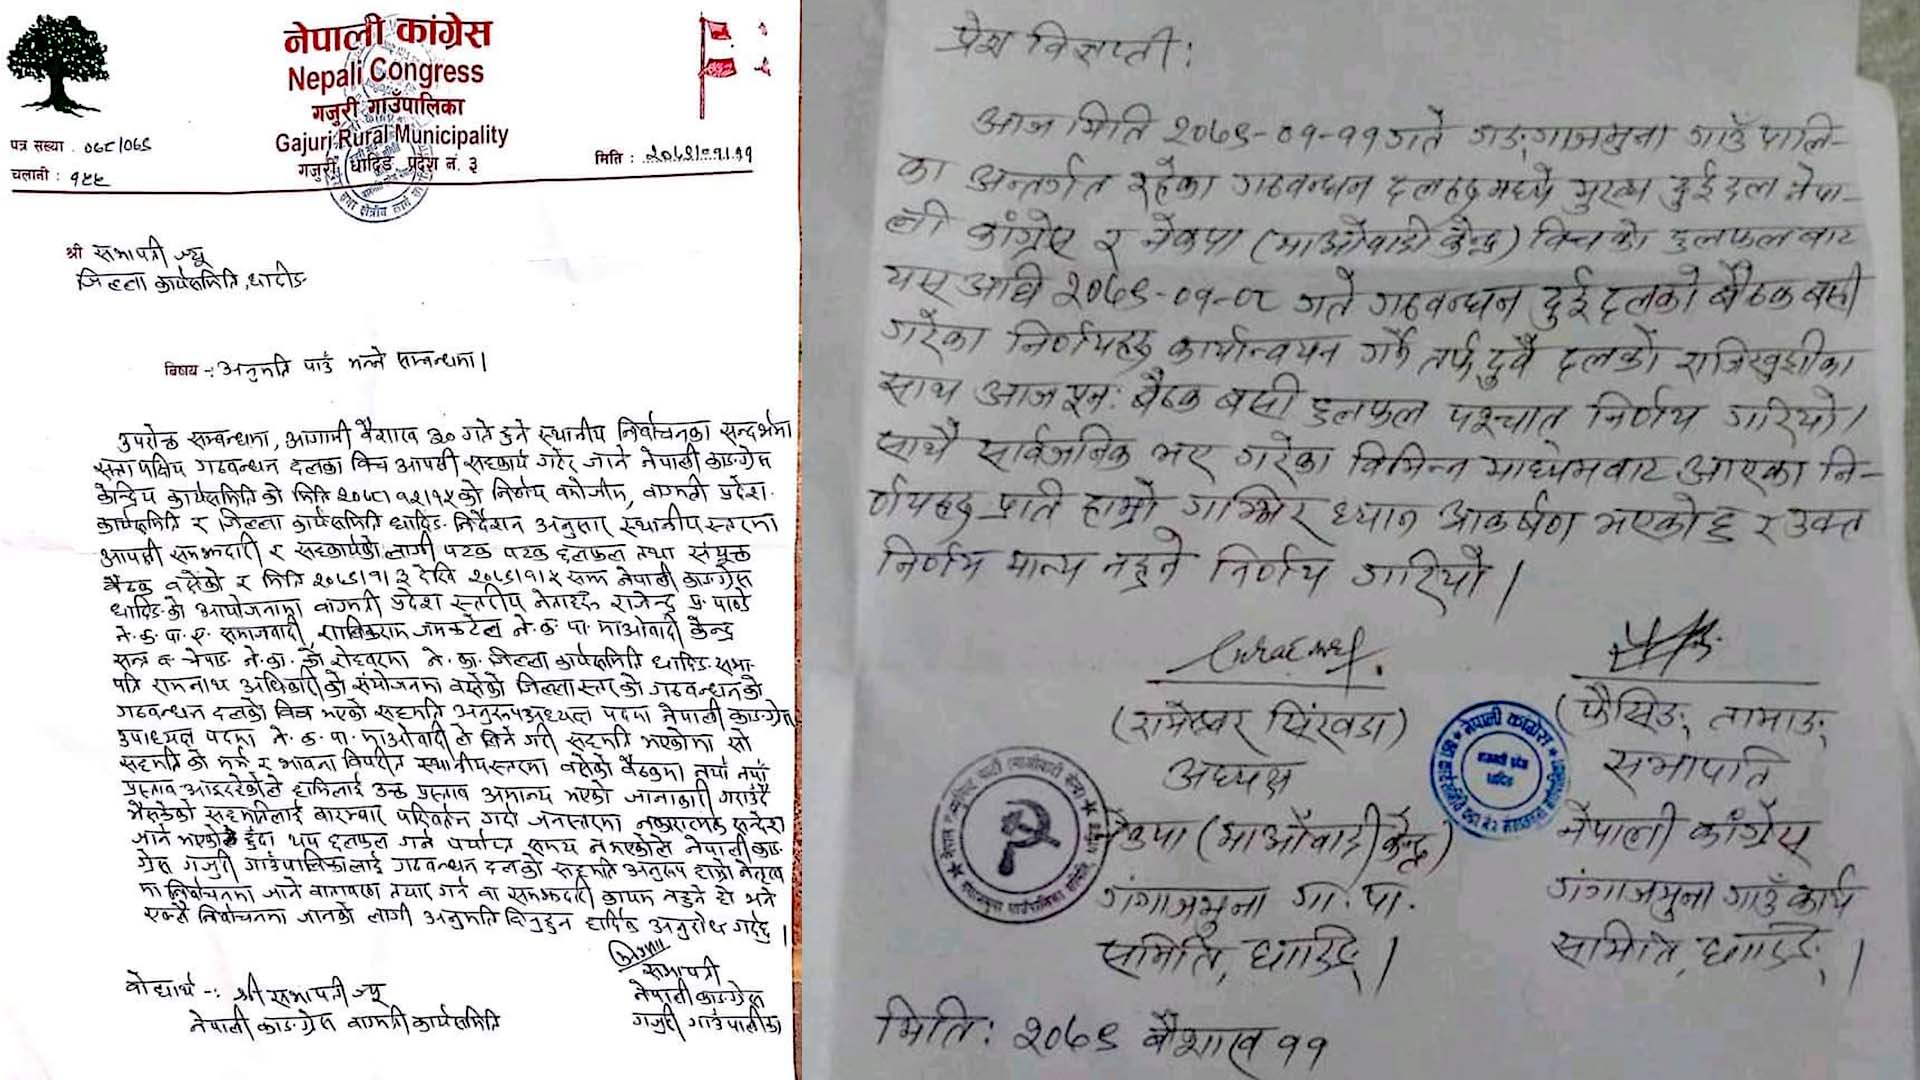 नेपाली कांग्रेस
Nepali Congress
गजुरी गाउँपालिका
Gajuri Rural Municipality
गजुरी, धादिङ प्रदेश नं. ३
पत्र सख्या : ०७८/०७९
चलानी : १९९
मिति : २०७९।०१।११
श्री सभापती ज्यू
जिल्ला कार्यसमिति, धादीङ
विषय :- अनुमति पाउँ भन्ने सम्बन्धमा।
उपरोक्त सम्बन्धमा, आगामी वैशाख ३० गते हुने स्थानीय निर्वाचनका सन्दर्भमा
सत्ता पक्षिय गठवन्धन दलका विच आपसी सहकार्य गरेर जाने नेपाली काङग्रेस
केन्द्रिय कार्यसमिति को मिति २०७८।१२।१५ को निर्णय वमोजीम, वागमती प्रदेश
कार्यसमिति र जिल्ला कार्यसमिति धादिङ निर्देशन अनुसार स्थानीयस्तरमा
आपसी समझदारी र सहकार्यको लागी पटक पटक छलफल तथा संयुक्त
बैठक वसेको र मिति २०७९।१।३ देखि २०७९।१।५ सम्म नेपाली काङग्रेस
धादिङको आयोजनामा वागमती प्रदेश स्तरीय नेताहरु राजेन्द्र प्र. पाण्डे
ने. क. पा. ए. समाजवादी, शालिकराम जमकट्टेल ने. क. पा. माओवादी केन्द्र
ने. का. जिल्ला कार्यसमिति धादिङ सभा-
पति रामनाथ अधिकारीको संयोजनमा वसेको जिल्लास्तरको गठवन्धनको
गठवन्धन दलको विच भएको सहमति अनुरुप अध्यक्ष पदमा नेपाली काङग्रेस
उपाध्यक्ष पदमा ने. क. पा. माओवादी ले लिने गरी सहमति भएकोमा सो
सहमति को मर्म र भावना विपरीत स्थानीयस्तरमा वसेको बैठकमा नयाँ नयाँ
प्रस्ताव आइरहेकोले हामिलाई उक्त प्रस्ताव अमान्य भएको जानाकारी गराउँदै
भैसकेको सहमतिलाई बारम्बार परिवर्तन गर्दा जनस्तरमा नकारात्मक सन्देश
जाने भएको हुँदा थप छलफल गर्न पर्याप्त समय नभएकोले नेपाली काङ-
ग्रेस गजुरी गाउँपालिकालाई गठवन्धन दलको सहमति अनुरुप हाम्रो नेतृत्व
मा निर्वाचनमा जाने वातावरण तयार गर्न वा समझदारी कायम नहुने हो भने
एक्लै निर्वाचनमा जानको लागी अनुमति दिनुहुन हार्दिक अनुरोध गर्दछु।
सभापती
नेपाली काङग्रेस
गजुरी गाउँपालीका
वोधार्थ -: श्री सभापती ज्यू
नेपाली काङग्रेस वागमती कार्यसमिति
प्रेश विज्ञप्ती:
आज मिति २०७९-०१-११ गते गङ्गाजमुना गाउँ पालि-
का अन्तर्गत रहेका गठवन्धन दलहरु मध्ये मुख्य दुई दल नेपा-
ली कांग्रेस र नेकपा (माओवादी केन्द्र) विच को छलफल बाट
यस अघि २०७९-०१-०८ गते गठवन्धन दुई दलको बैठक बसी
गरेका निर्णयहरु कार्यान्वयन गर्ने तर्फ दुवै दलको राजिखुशीका
साथ आज पुन: बैठक बसी छलफल पश्चात निर्णय गरियो।
साथै सार्वजनिक भए गरेका विभिन्न माध्यमबाट आएका नि-
र्णयहरु प्रति हाम्रो गम्भिर ध्यान आकर्षण भएको छ र उक्त
निर्णय मान्य नहुने निर्णय गरियो।
(रामेश्वर सिंखडा)
अध्यक्ष
नेकपा (माओवादी केन्द्र)
गंगाजमुना गा. पा.
समिति, धादिङ।
(फैसिङ तामाङ)
सभापति
नेपाली कांग्रेस
गंगाजमुना गाउँ कार्य
समिति, धादिङ।
मिति: २०७९ बैशाख ११